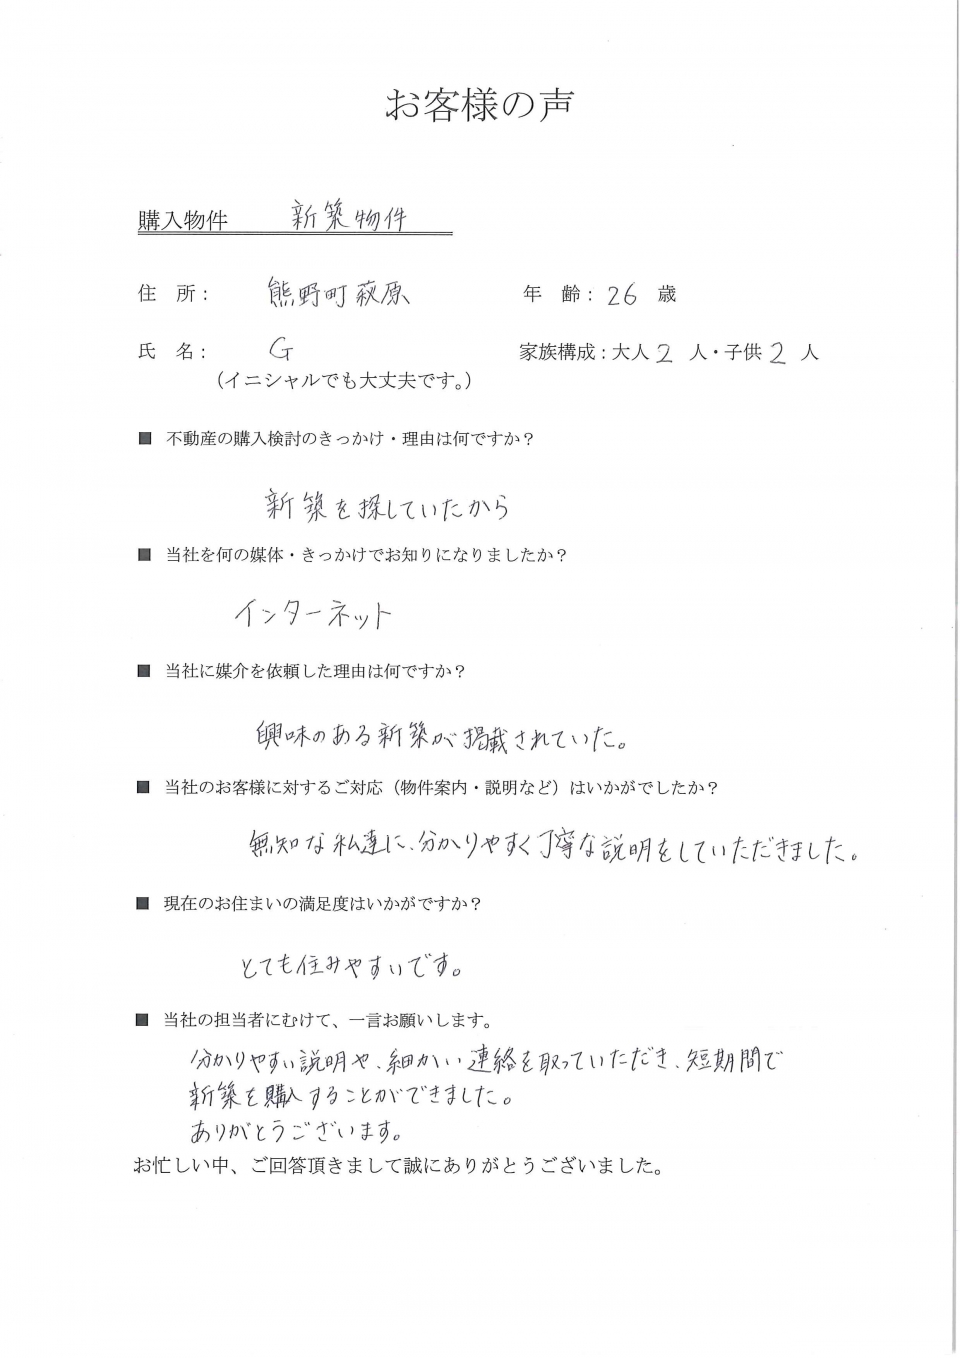 お客様の声
購入物件　新築物件
住　所：　熊野町萩原　年　齢：26　歳
氏　名：　G　家族構成：大人2　人・子供2　人
（イニシャルでも大丈夫です。）
■　不動産の購入検討のきっかけ・理由は何ですか？
新築を探していたから
■　当社を何の媒体・きっかけでお知りになりましたか？
インターネット
■　当社に媒介を依頼した理由は何ですか？
興味のある新築が掲載されていた。
■　当社のお客様に対するご対応（物件案内・説明など）はいかがでしたか？
無知な私達に、分かりやすく丁寧な説明をしていただきました。
■　現在のお住まいの満足度はいかがですか？
とても住みやすいです。
■　当社の担当者にむけて、一言お願いします。
分かりやすい説明や、細かい連絡を取っていただき、短期間で
新築を購入することができました。
ありがとうございます。
お忙しい中、ご回答頂きまして誠にありがとうございました。